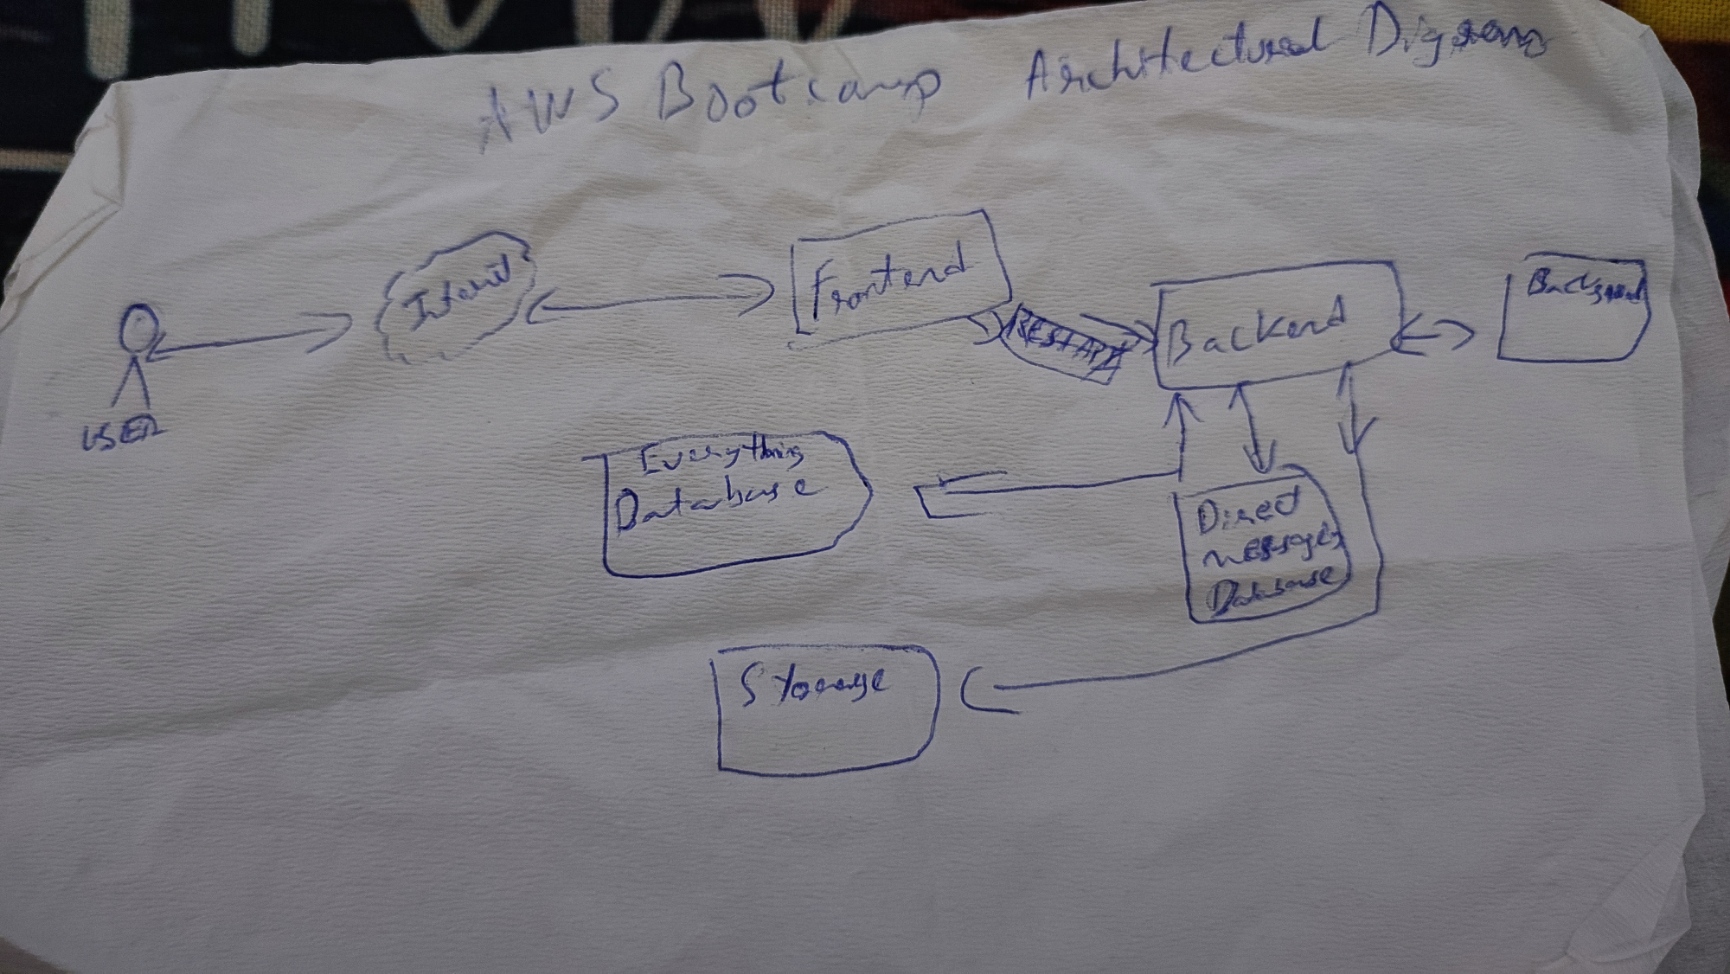 AWS Bootcamp Architectural Digram
Internet
Frontend
RESTAPI
Backend
USER
Everything
Database
Direct
Messages
Database
Storage